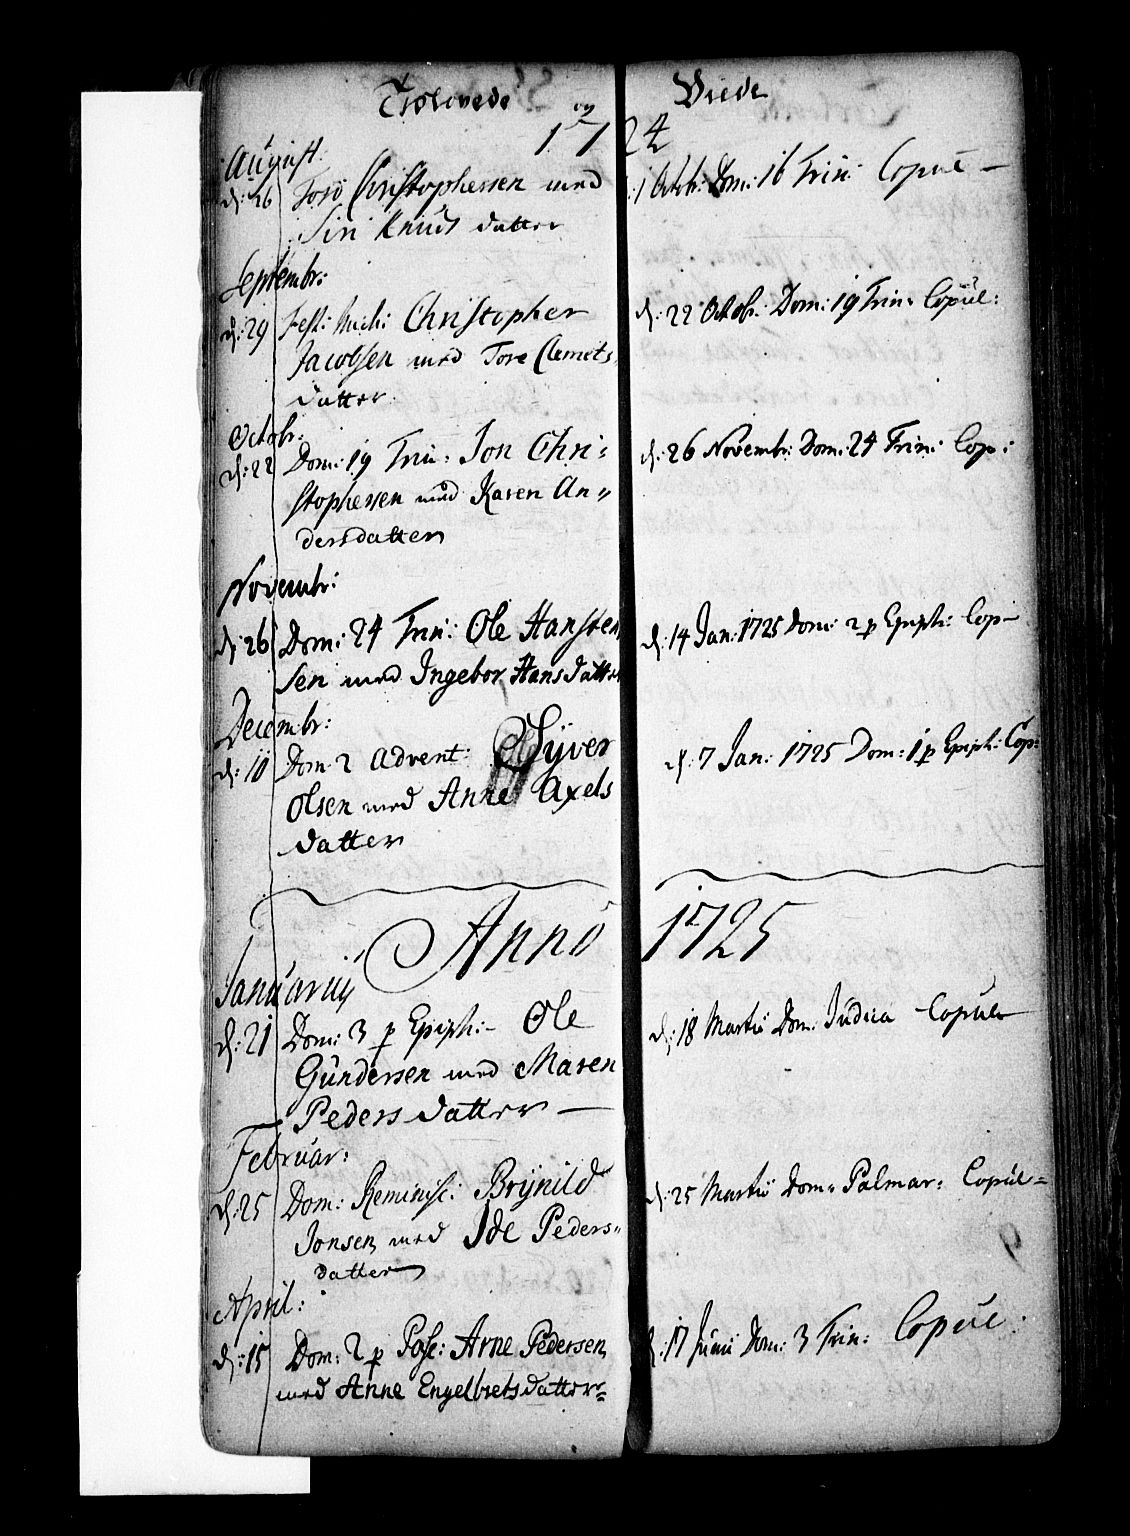 Trolovede og Viede
1724
August:
d: 26 Tord Christophersen med
Siri Knuds datter
d: 1 Octob: Dom: 16 Trin: Copul –
Septembr:
d: 29 Fest: Mich: Christopher
Jacobsen med Tore Clemets
datter
d: 22 Octobr: Dom: 19 Trin: Copul:
Octobr:
d: 22 Dom: 19 Trin: Jon Chri-
stophersen med Karen An-
dersdatter
d: 26 Novembr: Dom: 24 Trin: Cop:
Novembr:
d: 26 Dom: 24 Trin: Ole Hansten
sen med Ingebor Hansdatter
d: 14 Jan: 1725 Dom: 2 p Epiph: Cop –
Decembr:
d: 10 Dom 2 Advent: Syver
Olsen med Anne Axels
datter
d: 7 Jan: 1725 Dom: 1 p Epiph: Cop:
Anno 1725
Januarius
d: 21 Dom: 3 p Epiph: – Ole
Gundersen med Maren
Peders datter –
d: 18 Martii Dom: Judica Copul
Februar:
d: 25 Dom: Reminisc: Brynild
Jonsen med Ide Peders-
datter
d: 25 Martii Dom: Palmar: Copul-
April:
d: 15 Dom: 2 p Pasc: Arne Pedersen
med Anne Engelbretsdatter
d: 17 Junii Dom: 3 Trin: Copul: